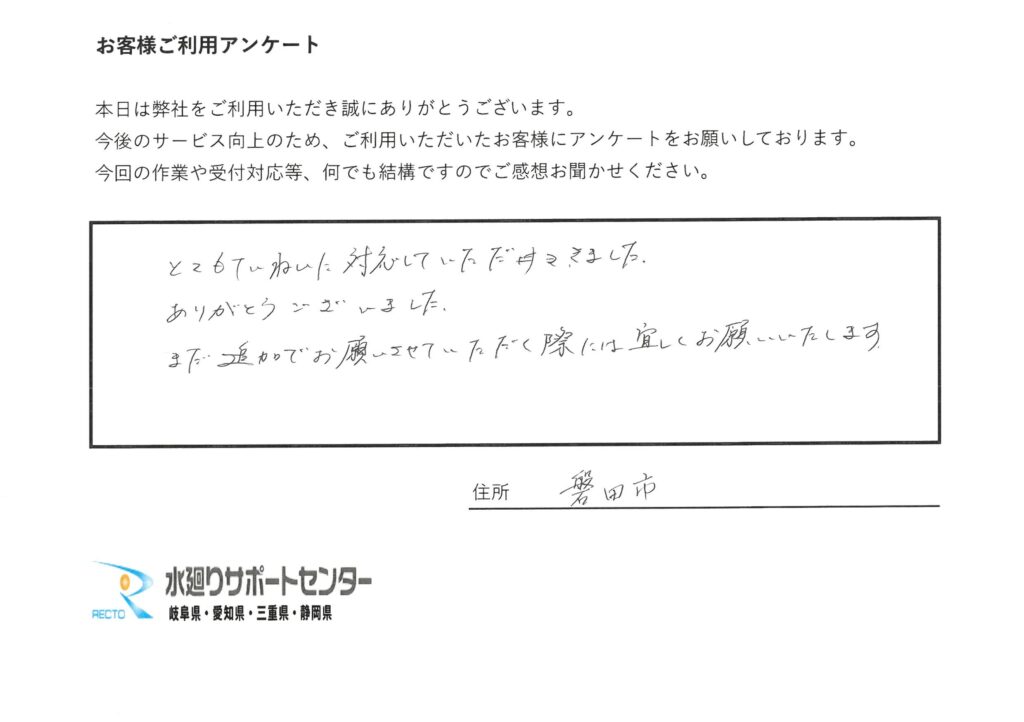 お客様ご利用アンケート
本日は弊社をご利用いただき誠にありがとうございます。
今後のサービス向上のため、ご利用いただいたお客様にアンケートをお願いしております。
今回の作業や受付対応等、何でも結構ですのでご感想お聞かせください。
とてもていねいた対応していただけきました。
ありがとうございました。
まだ追加でお願いさせていただく際には宜しくお願いいたします
住所 磐田市
RECTO
水廻りサポートセンター
岐阜県・愛知県・三重県・静岡県